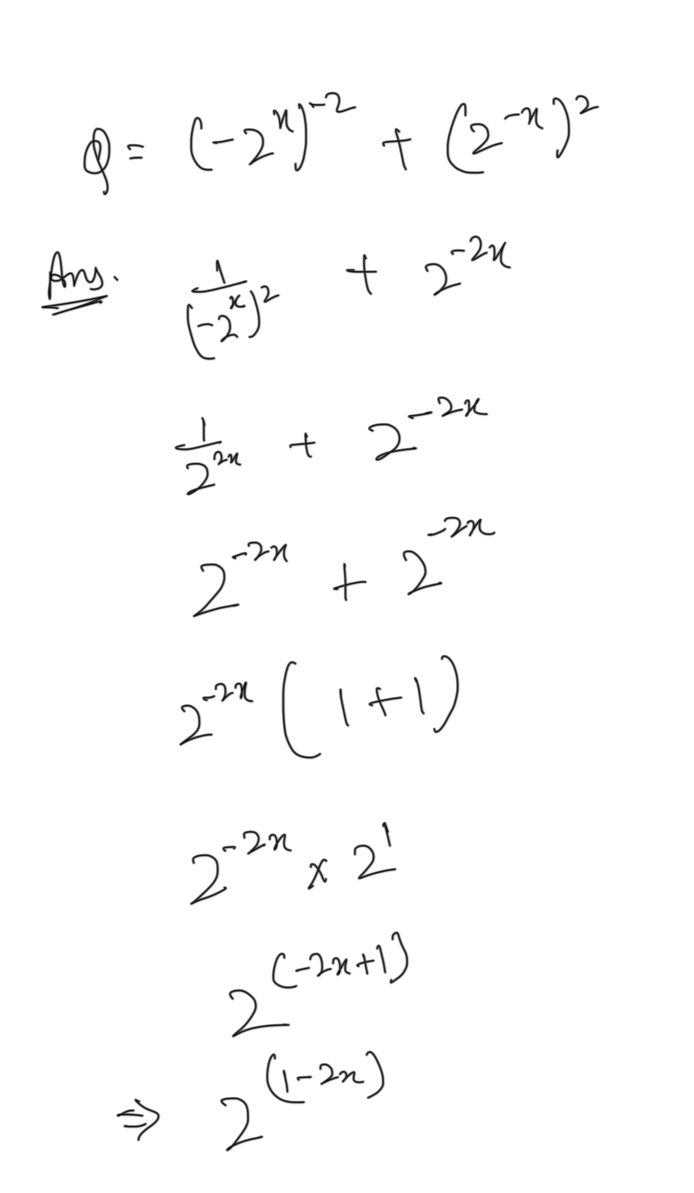 Q = (-2^x)^-2 + (2^-x)^2
Ans. 1/(-2^x)^2 + 2^-2x
1/2^2x + 2^-2x
2^-2x + 2^-2x
2^-2x (1+1)
2^-2x × 2^1
2^(-2x+1)
⇒ 2^(1-2x)